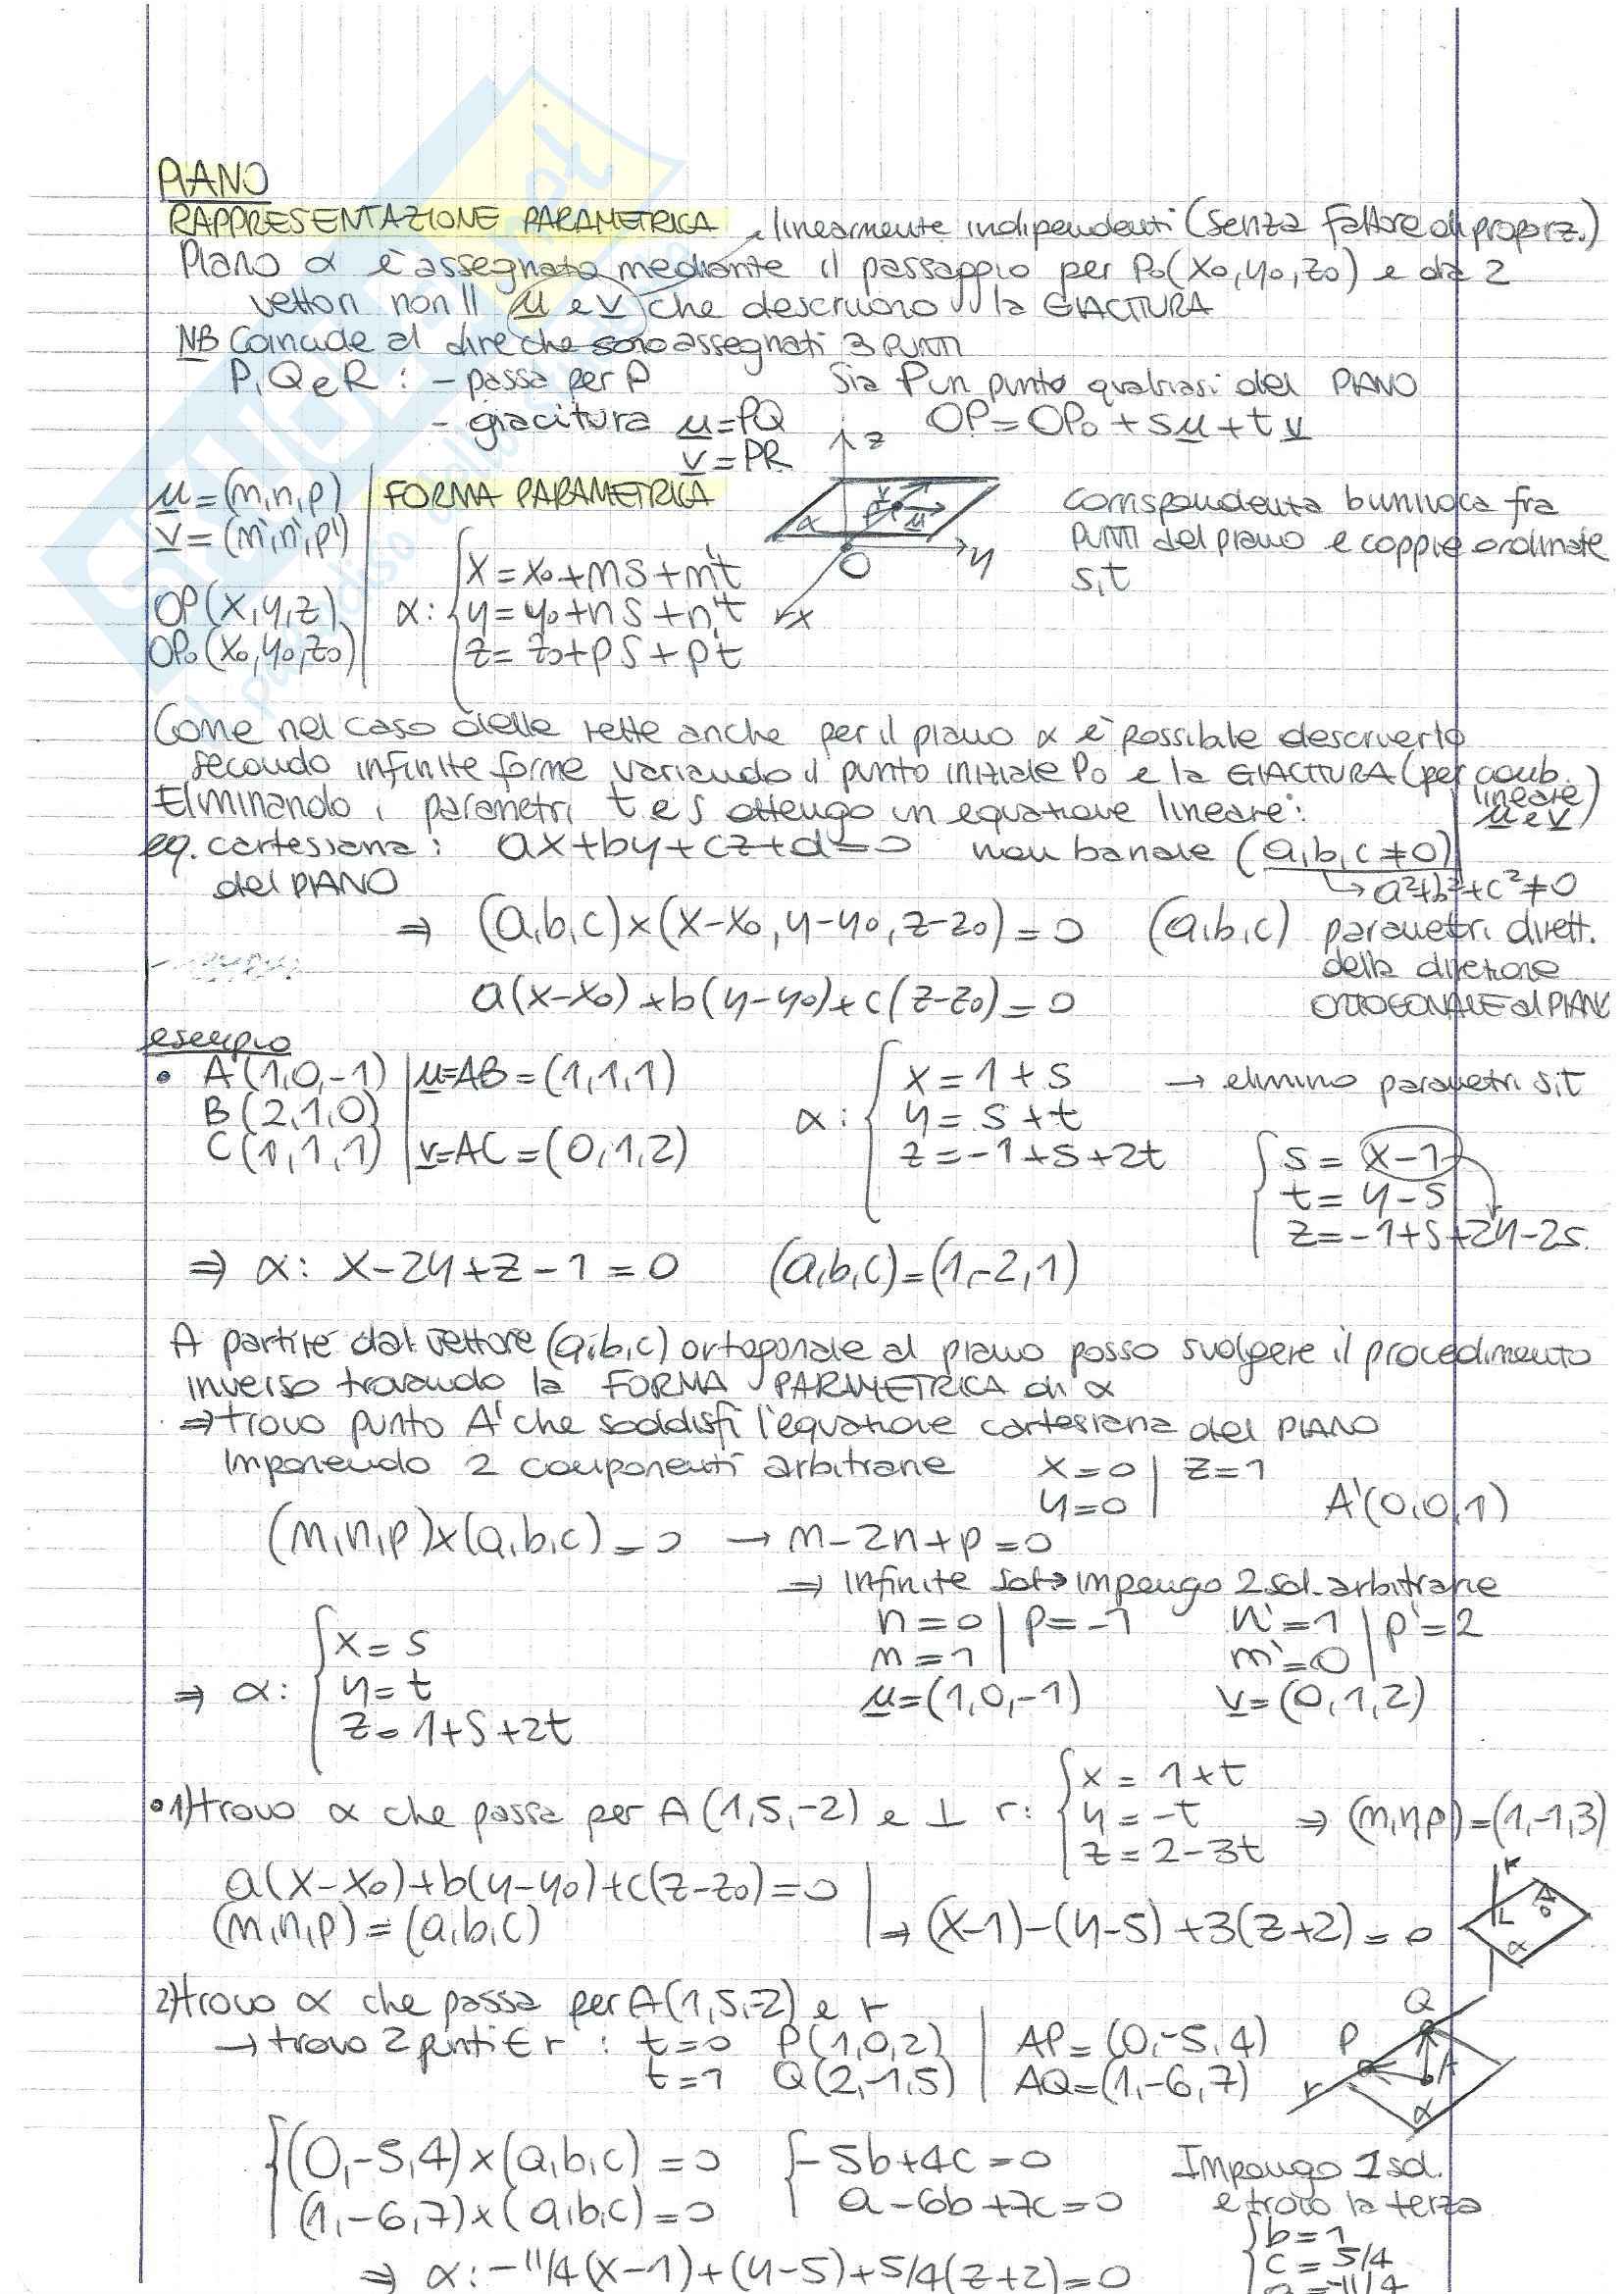 PIANO
RAPPRESENTAZIONE PARAMETRICA linearmente indipendenti (senza fattore di proporz.)
Piano α è assegnato mediante il passaggio per P0(x0,y0,z0) e da 2
vettori non || u e v che descrivono la GIACITURA
NB Coincide al dire che sono assegnati 3 PUNTI
P,Q e R : - passa per P Sia P un punto qualsiasi del PIANO
- giacitura u=PQ OP=OP0+su+tv
v=PR
z
u=(m,n,p) FORMA PARAMETRICA
v=(m',n',p')
α P v u
O y
x
corrispondenza biunivoca fra
PUNTI del piano e coppie ordinate
s,t
OP(x,y,z)
OP0(x0,y0,z0)
α: { x=x0+ms+m't
y=y0+ns+n't
z=z0+ps+p't
Come nel caso delle rette anche per il piano α è possibile descriverlo
secondo infinite forme variando il punto iniziale P0 e la GIACITURA (per comb. lineare u e v)
Eliminando i parametri t e s ottengo un equazione lineare:
eq. cartesiana: ax+by+cz+d=0 non banale (a,b,c≠0)
del PIANO → a²+b²+c²≠0
⇒ (a,b,c)×(x-x0,y-y0,z-z0)=0 (a,b,c) parametri dirett.
della direzione
a(x-x0)+b(y-y0)+c(z-z0)=0 ORTOGONALE al PIANO
esempio
• A(1,0,-1) | u=AB=(1,1,1)
B(2,1,0)
C(1,1,1) | v=AC=(0,1,2)
α: { x=1+s → elimino parametri s,t
y=s+t
z=-1+s+2t
{ s=x-1
t=y-s
z=-1+s+2y-2s
⇒ α: x-2y+z-1=0 (a,b,c)=(1,-2,1)
A partire dal vettore (a,b,c) ortogonale al piano posso svolgere il procedimento
inverso trovando la FORMA PARAMETRICA di α
⇒ trovo punto A' che soddisfi l'equazione cartesiana del PIANO
Imponendo 2 componenti arbitrarie x=0 | z=1
y=0 | A'(0,0,1)
(m,n,p)×(a,b,c)=0 → m-2n+p=0
⇒ infinite sol → impongo 2 sol. arbitrarie
n=0 | p=-1 n'=1 | p'=2
m=1 | m'=0 |
u=(1,0,-1) v=(0,1,2)
⇒ α: { x=s
y=t
z=1+s+2t
• 1) trovo α che passa per A(1,5,-2) e ⊥ r: { x=1+t
y=-t
z=2-3t
⇒ (m,n,p)=(1,-1,3)
a(x-x0)+b(y-y0)+c(z-z0)=0
(m,n,p)=(a,b,c) ⇒ (x-1)-(y-5)+3(z+2)=0
r A α
2) trovo α che passa per A(1,5,-2) e r
→ trovo 2 punti ∈ r : t=0 P(1,0,2) | AP=(0,-5,4)
t=1 Q(2,-1,5) | AQ=(1,-6,7)
Q P A r α
{ (0,-5,4)×(a,b,c)=0 { -5b+4c=0
(1,-6,7)×(a,b,c)=0 a-6b+7c=0
Impongo 1 sol.
e trovo la terza
{ b=1
c=5/4
a=-11/4
⇒ α: -11/4(x-1)+(y-5)+5/4(z+2)=0